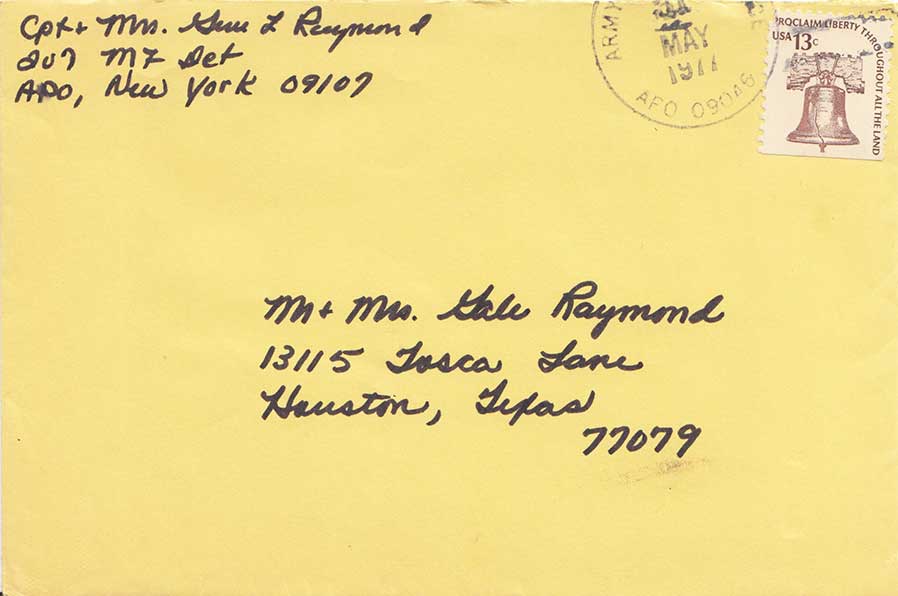 Cpt + Mrs. L Raymond
207 MI Det
APO, New York 09107
ARMY
MAY
1977
APO 09046
PROCLAIM LIBERTY THROUGHOUT ALL THE LAND
USA 13c
Mr + Mrs. Gale Raymond
13115 Tosca Lane
Houston, Texas
77079